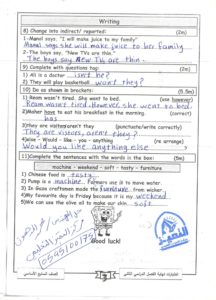 Writing
8) Change into indirect/ reported: (2m)
1- Manal says, "I will make juice to my family"
Manal says she will make juice to her family.
2- The boys say, "New TVs are thin."
The boys say New TVs are thin.
9) Complete with question tag: (2m)
1) Ali is a doctor isn't he?
2) They will play basketball won't they?
10) Do as shown in brackets: (5.5m)
1) Reem wasn't tired. She went to bed. (use however)
Reem wasn't tired. However, she went to bed.
2) Maher have to eat his breakfast in the morning. (correct)
has
3) they are visiters aren't they (punctuate/write correctly)
They are visitors, aren't they?
4) else - Would - like - you - anything (re arrange)
Would you like anything else ?
11) Complete the sentences with the words in the box: (5m)
machine - weekend - soft - tasty - furniture
1) Chinese food is tasty.
2) Pump is a machine. Farmers use it to move water.
3) In Gaza craftsmen made the furniture from wicker.
4) My favourite day is Friday because it is my weekend.
5) We can use the olive oil to make our skin soft.
Good luck!